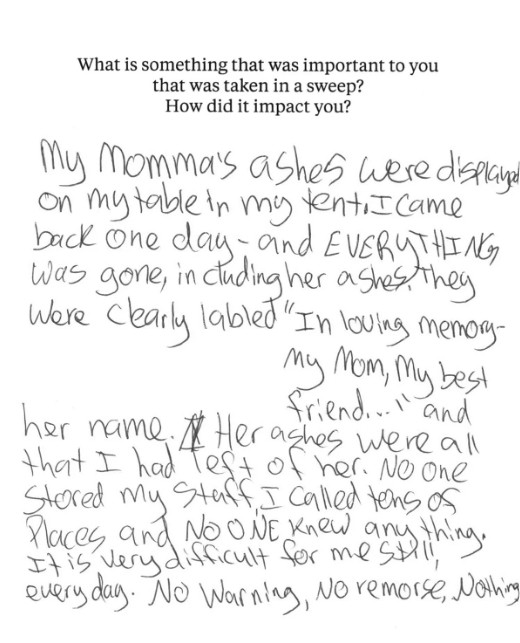 What is something that was important to you
that was taken in a sweep?
How did it impact you?
My Momma's ashes were displayed
on my table in my tent. I came
back one day - and EVERYTHING
was gone, including her ashes. They
were clearly labled "In loving memory-
My Mom, My best
friend..." and
her name. Her ashes were all
that I had left of her. No one
stored my staff, I called tens of
Places and NO ONE knew anything.
It is very difficult for me still,
everyday. No Warning, No remorse, Nothing